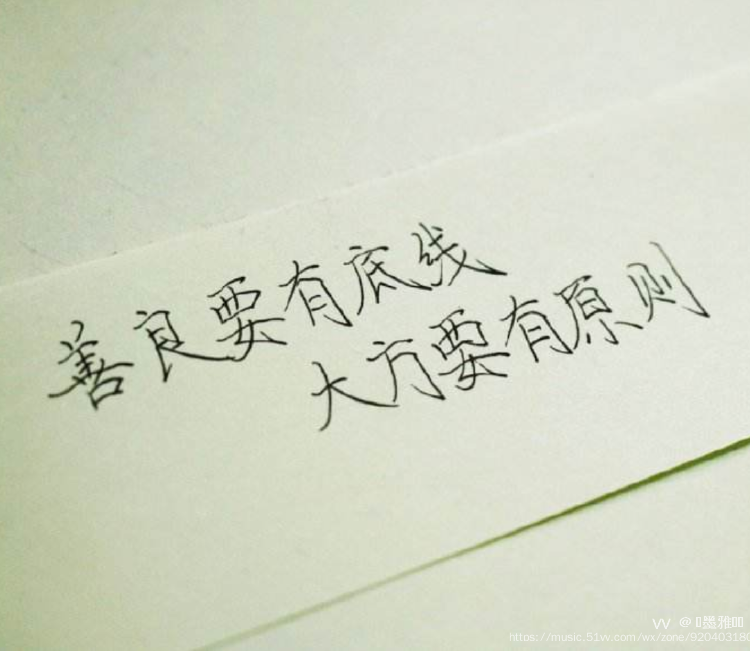 善良要有底线
大方要有原则
https://music.51vv.com/wx/zone/920403180